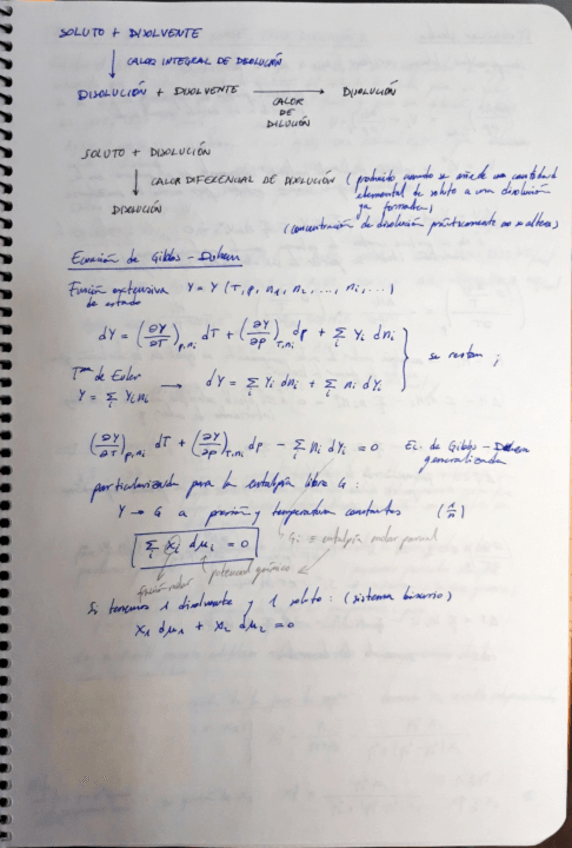 SOLUTO + DISOLVENTE
↓ CALOR INTEGRAL DE DISOLUCIÓN
DISOLUCIÓN + DISOLVENTE ⟶ DISOLUCIÓN
CALOR
DE
DILUCIÓN
SOLUTO + DISOLUCIÓN
↓ CALOR DIFERENCIAL DE DISOLUCIÓN (producido cuando se añade una cantidad
elemental de soluto a una disolución
ya formada)
DISOLUCIÓN
(concentración de disolución prácticamente no se altera)
Ecuación de Gibbs - Duhem
Función extensiva Y = Y (T, p, n₁, n₂, ..., nᵢ, ...)
de estado
dY = (∂Y/∂T)p,nᵢ dT + (∂Y/∂p)T,nᵢ dp + Σᵢ Yᵢ dnᵢ
se restan ;
Tᵐᵃ de Euler → dY = Σᵢ Yᵢ dnᵢ + Σᵢ nᵢ dYᵢ
Y = Σᵢ Yᵢ nᵢ
(∂Y/∂T)p,nᵢ dT + (∂Y/∂p)T,nᵢ dp − Σᵢ nᵢ dYᵢ = 0 Ec. de Gibbs - Duhem
generalizada
particularizada para la entalpía libre G :
Y → G a presión y temperatura constantes (1/n)
Σᵢ xᵢ dμᵢ = 0
Gᵢ ≡ entalpía molar parcial
potencial químico
fracción molar
Si tenemos 1 disolvente y 1 soluto : (sistema binario)
x₁ dμ₁ + x₂ dμ₂ = 0